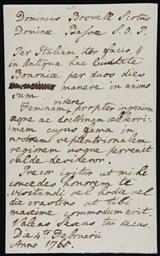 Dominus Boswell Scotus
Dominæ Bassæ S. D. P.
Per Italiam iter facio, &
in antiqua hac Civitate
Bononia per duos dies
manere in animo
videre
Feminam propter ingenium
æque ac doctrinam celeberri
mam cujus fama in
nostram septentrionalem
regionem usque pervenit
valde desidero.
Precor igitur ut mihi
concedas honorem te
visitandi vel hodie vel
die crastino ut tibi
maxime commodum erit.
Valeas Sexus tui decus.
Die 4to Februarii
Anno 1765.